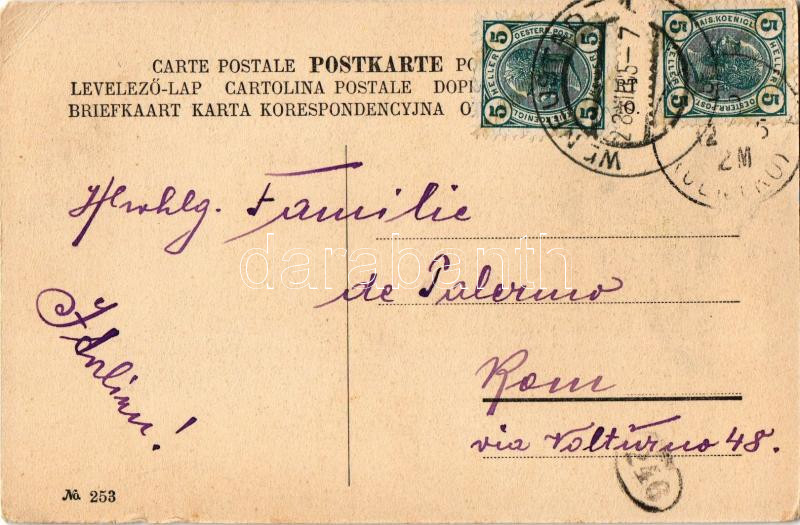 CARTE POSTALE POSTKARTE PO
LEVELEZŐ-LAP CARTOLINA POSTALE DOPI
BRIEFKAART KARTA KORESPONDENCYJNA O
5 OESTERR. POST 5
HELLER HELLER
5 5
KAIS. KOENIGL.
5 HELLER 5
OESTERR. POST
WR. NEUSTADT
28 5-7
2M
Hlwohlg. Familie
de Palermo
Rom
via Volturno 48.
Italien!
246
No. 253
darabanth